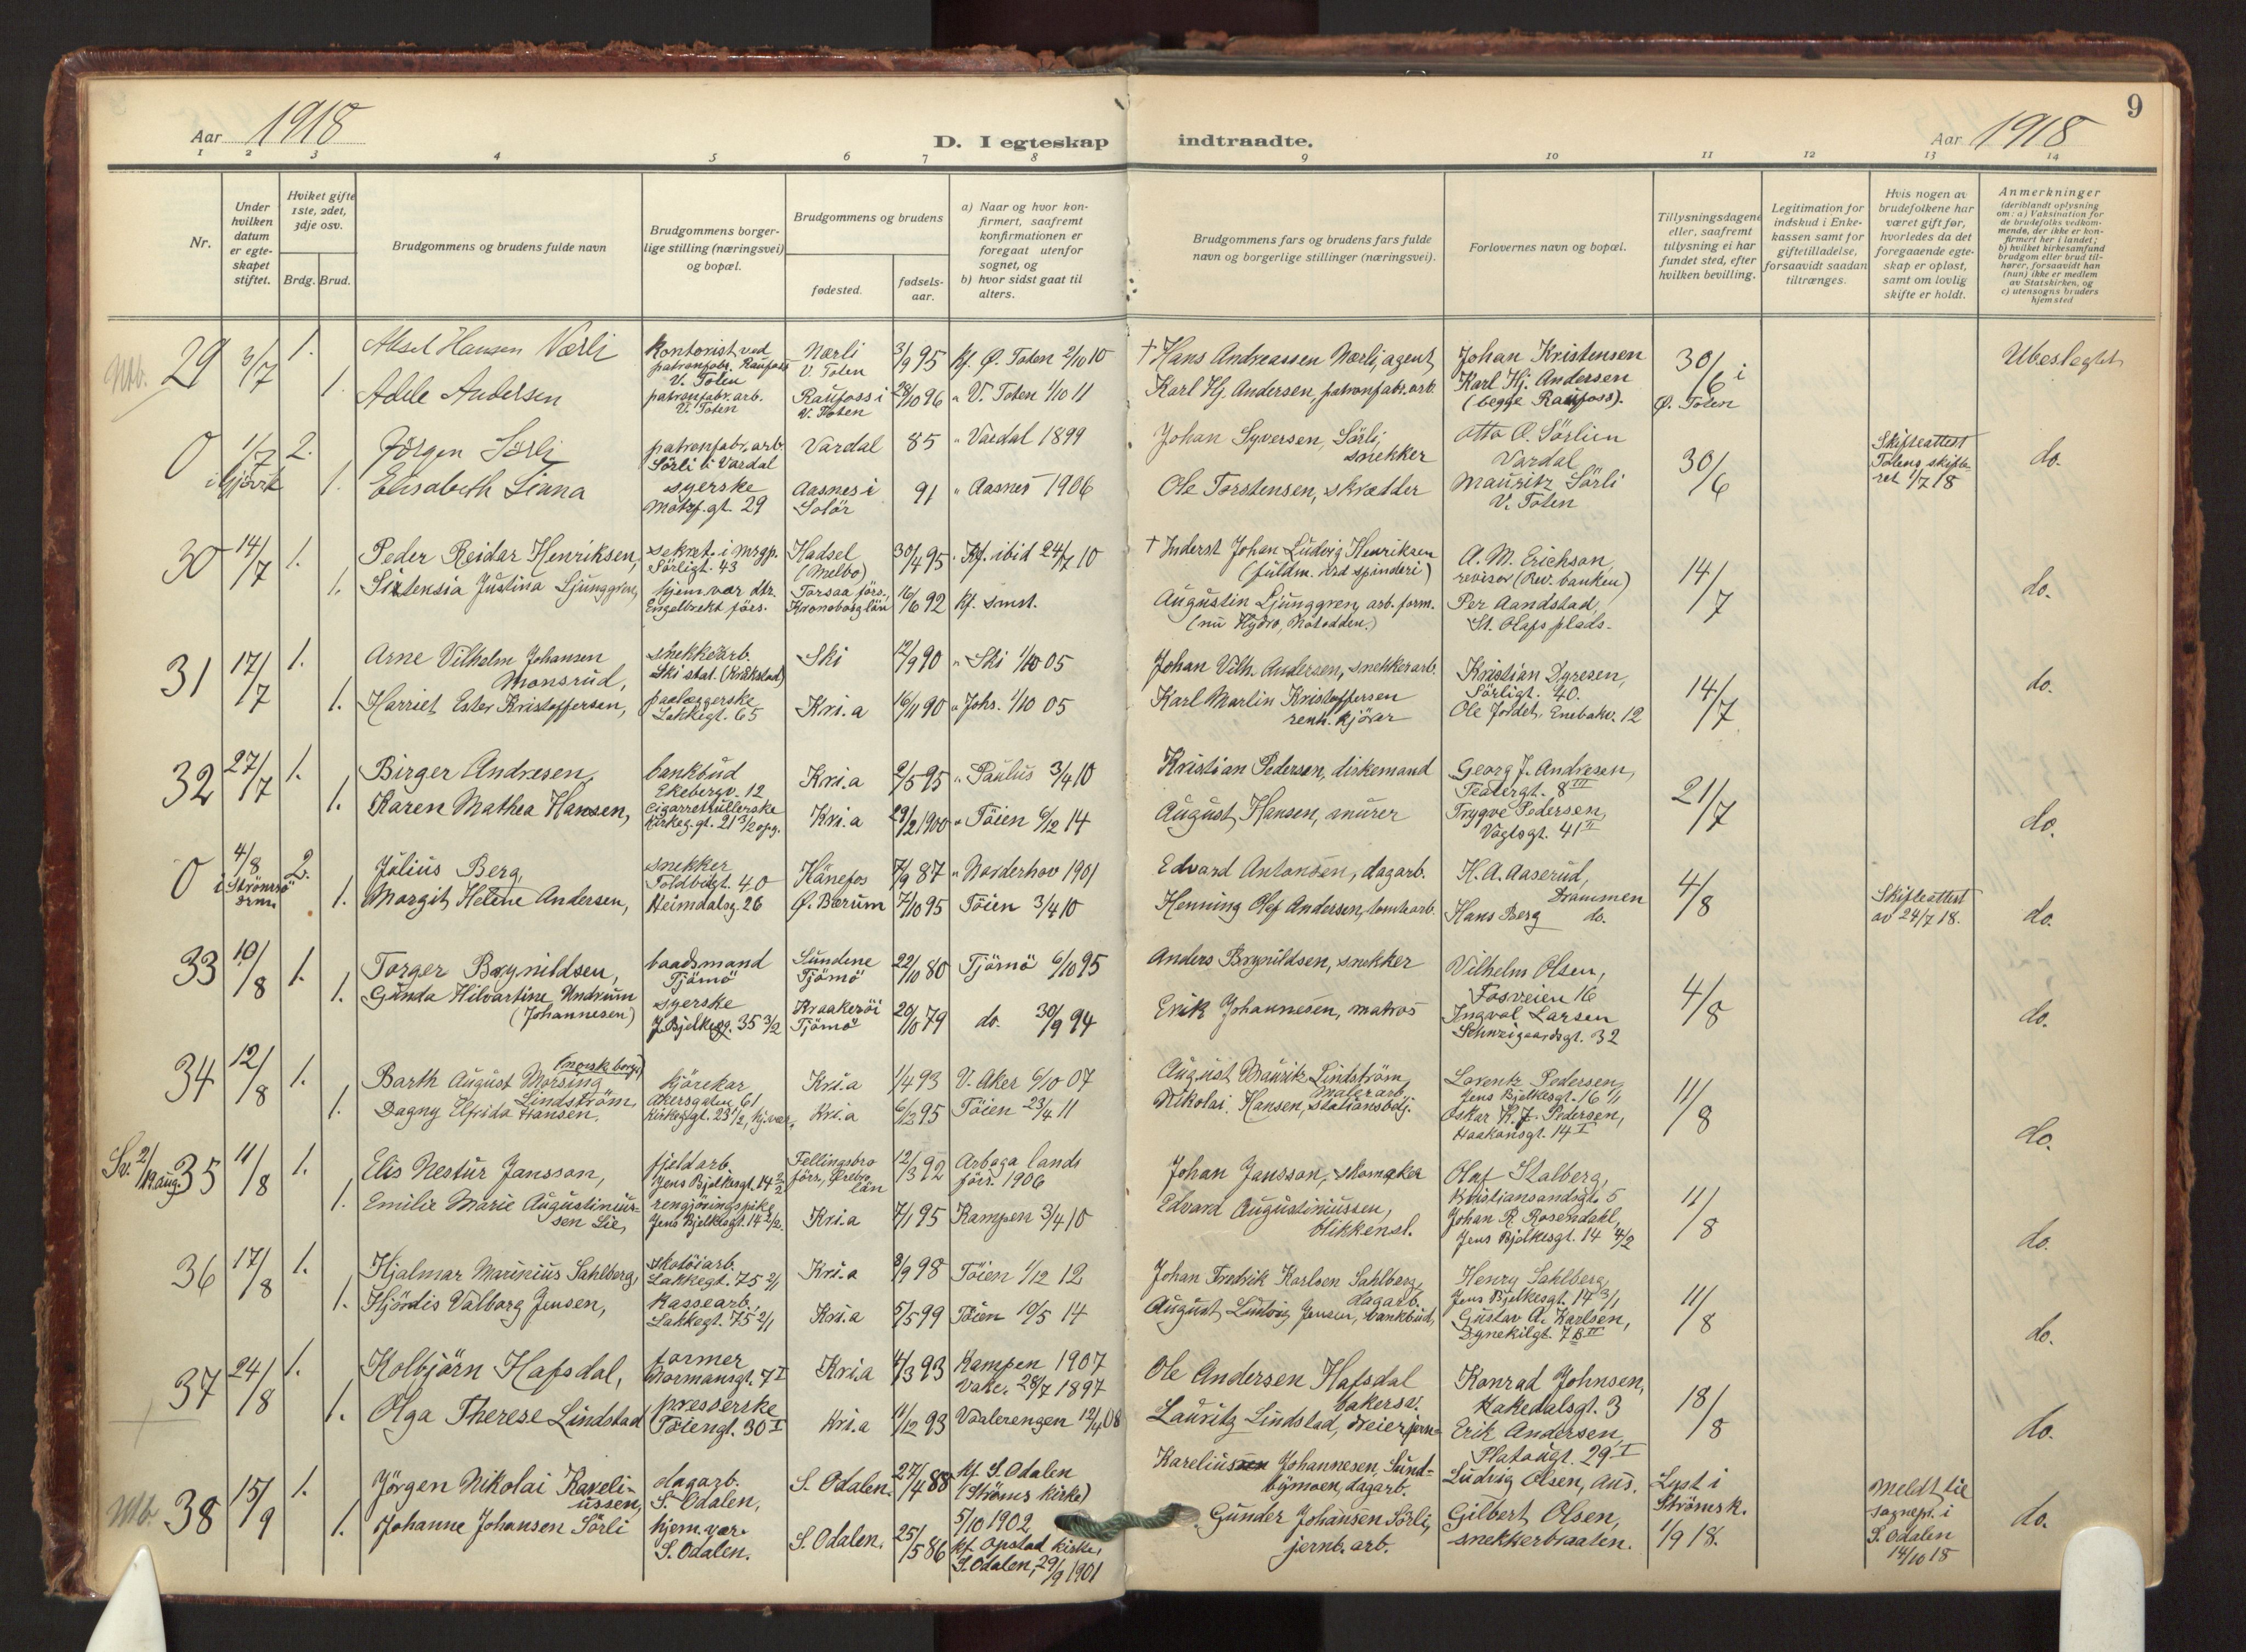 Aar 1918
D. I egteskap indtraadte.
Aar 1918
9
1 2 3 4 5 6 7 8 9 10 11 12 13 14
Nr.
Under hvilken datum er egteskapet stiftet.
Hvilket gifte 1ste, 2det, 3dje osv.
Brdg. Brud.
Brudgommens og brudens fulde navn
Brudgommens borgerlige stilling (næringsvei) og bopæl.
Brudgommens og brudens
fødested.
fødselsaar.
a) Naar og hvor konfirmert, saafremt konfirmationen er foregaat utenfor sognet, og
b) hvor sidst gaat til alters.
Brudgommens fars og brudens fars fulde navn og borgerlige stillinger (næringsvei).
Forlovernes navn og bopæl.
Tillysningsdagene eller, saafremt tillysning ei har fundet sted, efter hvilken bevilling.
Legitimation for indskud i Enkekassen samt for giftetilladelse, forsaavidt saadan tiltrænges.
Hvis nogen av brudefolkene har været gift før, hvorledes da det foregaaende egteskap er opløst, samt om lovlig skifte er holdt.
Anmerkninger
(deriblandt oplysning om: a) Vaksination for de brudefolks vedkommende, der ikke er konfirmert her i landet;
b) hvilket kirkesamfund brudgom eller brud tilhører, forsaavidt han (hun) ikke er medlem av Statskirken, og
c) utensogns bruders hjemsted
29 3/7 1. Aksel Hansen Nærli kontorist ved patronfabr. Raufoss V. Toten Nærli V. Toten 3/9 95 Kf. Ø. Toten 2/10 10 † Hans Andreassen Nærli, agent Johan Kristensen 30/6 i Ø. Toten Ubeslegtet
1. Adele Andersen patronfabr. arb. V. Toten Raufoss i V. Toten 28/10 96 " V. Toten 1/10 11 Karl Hj. Andersen, patronfabr. arb. Karl Hj. Andersen (begge Raufoss).
0 1/7 i Gjøvik 2. Jörgen Sörli patronfabr. arb. Sörli i Vardal Vardal 85 " Vardal 1899 Johan Syversen, Sörli, snekker Otto O. Sörlien Vardal 30/6 Skifteattest Totens skifteret 1/7 18 do.
1. Elisabeth Liana syerske Motzf. gt. 29 Aasnes i Solör 91 " Aasnes 1906 Ole Torstensen, skrædder Mauritz Sörli V. Toten
30 14/7 1. Peder Reidar Henriksen, sekret. i Mrgp. Sörligt. 43 Hadsel (Melbo) 30/4 95 Kf. ibid 24/7 10 † Inderst Johan Ludvig Henriksen (fuldm. ved spinderi) A. M. Erichson, revisor (Rev. banken) 14/7 do.
1. Sixtensia Justina Ljunggren, hjem. vær. dtr. Engelbrekt förs. Torsaa förs., Kronoborg län 16/6 92 Kf. smst. Augustin Ljunggren, arb. form. (nu Hydro, Notodden.) Per Aandstad, St. Olafs plads.
31 17/7 1. Arne Vilhelm Johansen Monsrud, snekkerarb. Ski stat. (Kråkstad) Ski 12/9 90 " Ski 1/10 05 Johan Vilh. Andersen, snekkerarb. Kristian Dyresen, Sörligt. 40. 14/7 do.
1. Harriet Ester Kristoffersen, paalæggerske Lakkegt. 65 Kri.a 16/11 90 " Johs. 1/10 05 Karl Martin Kristoffersen renh. kjörer Ole Jordet, Enebakv. 12
32 27/7 1. Birger Andresen, bankbud Ekebergv. 12 Kri.a 9/5 95 " Paulus 3/4 10 Kristian Pedersen, diskemand Georg J. Andresen, Teatergt. 8 III 21/7 do.
1. Karen Mathea Hansen, cigarretrullerske Kirkeg. gt. 21 3/2 opg. Kri.a 29/2 1900 " Töien 6/12 14 August Hansen, murer Trygve Pedersen, Vogtsgt. 41 II
0 4/8 i Strömsö Drmn 2. Julius Berg, snekker Toldbodgt. 40 Hönefos 7/9 87 " Norderhov 1901 Edvard Antonsen, dagarb. H. A. Aaserud, Drammen 4/8 Skifteattest av 24/7 18. do.
1. Margit Helene Andersen, Heimdalsg. 26 Ø. Bærum 7/10 95 Töien 3/4 10 Henning Olaf Andersen, tomtearb. Hans Berg do.
33 10/8 1. Torger Brynildsen, baadsmand Tjömö Sundene Tjömö 22/10 80 Tjömö 6/10 95 Anders Brynildsen, snekker Vilhelm Olsen, Fosveien 16 4/8 do.
1. Gunda Hilvartine Undrum (Johannesen) syerske J. Bjelkesg. 35 3/2 Kraakeröi Tjömö 20/10 79 do. 30/9 94 Erik Johannesen, matros Ingval Larsen Schweigaardsgt. 32
34 12/8 1. Barth August Morsing Lindström, (norsk borger) kjörekar Akersgaten 61 Kri.a 1/4 93 V. Aker 6/10 07 August Mauritz Lindström, Malerarb. Lorentz Pedersen, Jens Bjelkesgt. 16 1/1 11/8 do.
1. Dagny Elfrida Hansen. Kirkeg.gt. 23 1/2, hj. vær., Kri.a 6/12 95 Töien 23/4 11 Nikolai Hansen, stationsbetj. Oskar R. J. Pedersen, Haakonsgt. 14 I
Sv. 2/ 19 aug. 35 11/8 1. Elis Nestur Jansson, fjeldarb. Jens Bjelkesgt. 14 2/2 Fellingsbro förs., Örebro län 12/3 92 Arboga lands förs. 1906 Johan Jansson, skomaker Olaf Stalberg, Kristiansandsgt. 5 11/8 do.
1. Emilie Marie Augustiniussen Lie, rengjöringspike Jens Bjelkesgt. 14 2/2. Kri.a 7/1 95 Kampen 3/4 10 Edvard Augustiniussen, blikkensl. Johan R. Rosendahl, Jens Bjelkesgt. 14 4/2
36 17/8 1. Hjalmar Marinius Sahlberg, skotöiarb. Lakkegt. 75 2/1 Kri.a 8/9 98 Töien 1/12 12 Johan Fredrik Karlsen Sahlberg, dagarb. Henry Sahlberg, Jens Bjelkesgt. 14 3/1 11/8 do.
1. Hjördis Valborg Jensen, kassearb. Lakkegt. 75 2/1 Kri.a 5/5 99 Töien 10/5 14 August Ludvig Jensen, bankbud, Gustav A. Karlsen, Dynekilgt. 7 B II
37 24/8 1. Kolbjörn Hafsdal, former Normansgt. 7 I Kri.a 4/3 93 Kampen 1907 Vakc. 28/7 1897 Ole Andersen Hafsdal bakersv. Konrad Johnsen, Hakedalsgt. 3 18/8 do.
1. Olga Therese Lindstad presserske Töiengt. 30 I Kri.a 11/12 93 Vaalerengen 12/4 08 Lauritz Lindstad, dreier Erik Andersen, Plataugt. 29 I
Mb. 38 15/9 1. Jörgen Nikolai Kareliussen, dagarb. S. Odalen, S. Odalen. 27/4 88 kf. S. Odalen (Ströms kirke) 5/10 1902 Karelius Johannesen, Sundbymoen, dagarb. Ludvig Olsen, Aus. Lyst i Ströms k. 1/9 18. Meldt til sognepr. i S. Odalen 14/10 18 do.
1. Johanne Johansen Sörli hjem. vær. S. Odalen. S. Odalen. 25/5 86 kf. Opstad kirke, S. Odalen, 29/9 1901 Gunder Johansen Sörli, jernb. arb. Gilbert Olsen, snekkerbraaten.